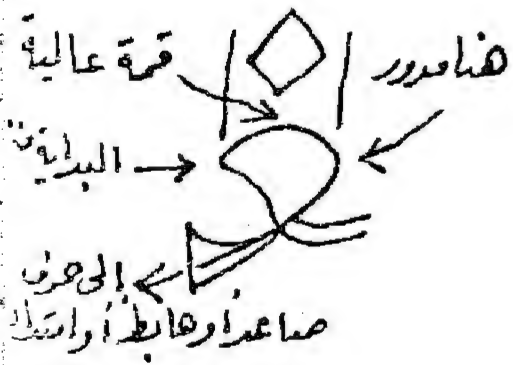 قمة عالية
هنا مدور
البداية
إلى حرف
صاعد أو هابط أو امتداد